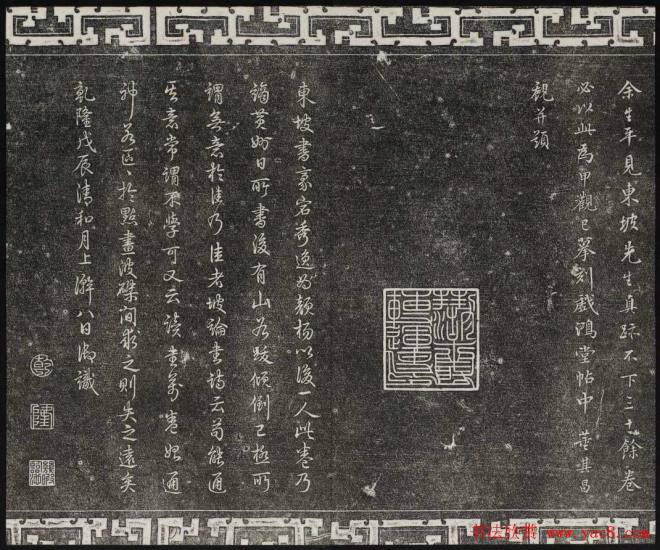 余生平見東坡先生真跡不下三十餘卷
必以此為甲觀已摹刻戲鴻堂帖中 董其昌
觀并題
東坡書豪宕秀逸為顏楊以後一人此卷乃
謫黃州日所書後有山谷跋傾倒已極所
謂無意於佳乃佳者坡論書詩云苟能通
其意常謂不學可又云讀書萬卷始通
神若區〻於點畫波磔間求之則失之遠矣
乾隆戊辰清和月上澣八日御識
乾
隆
书法欣赏 www.yac8.com